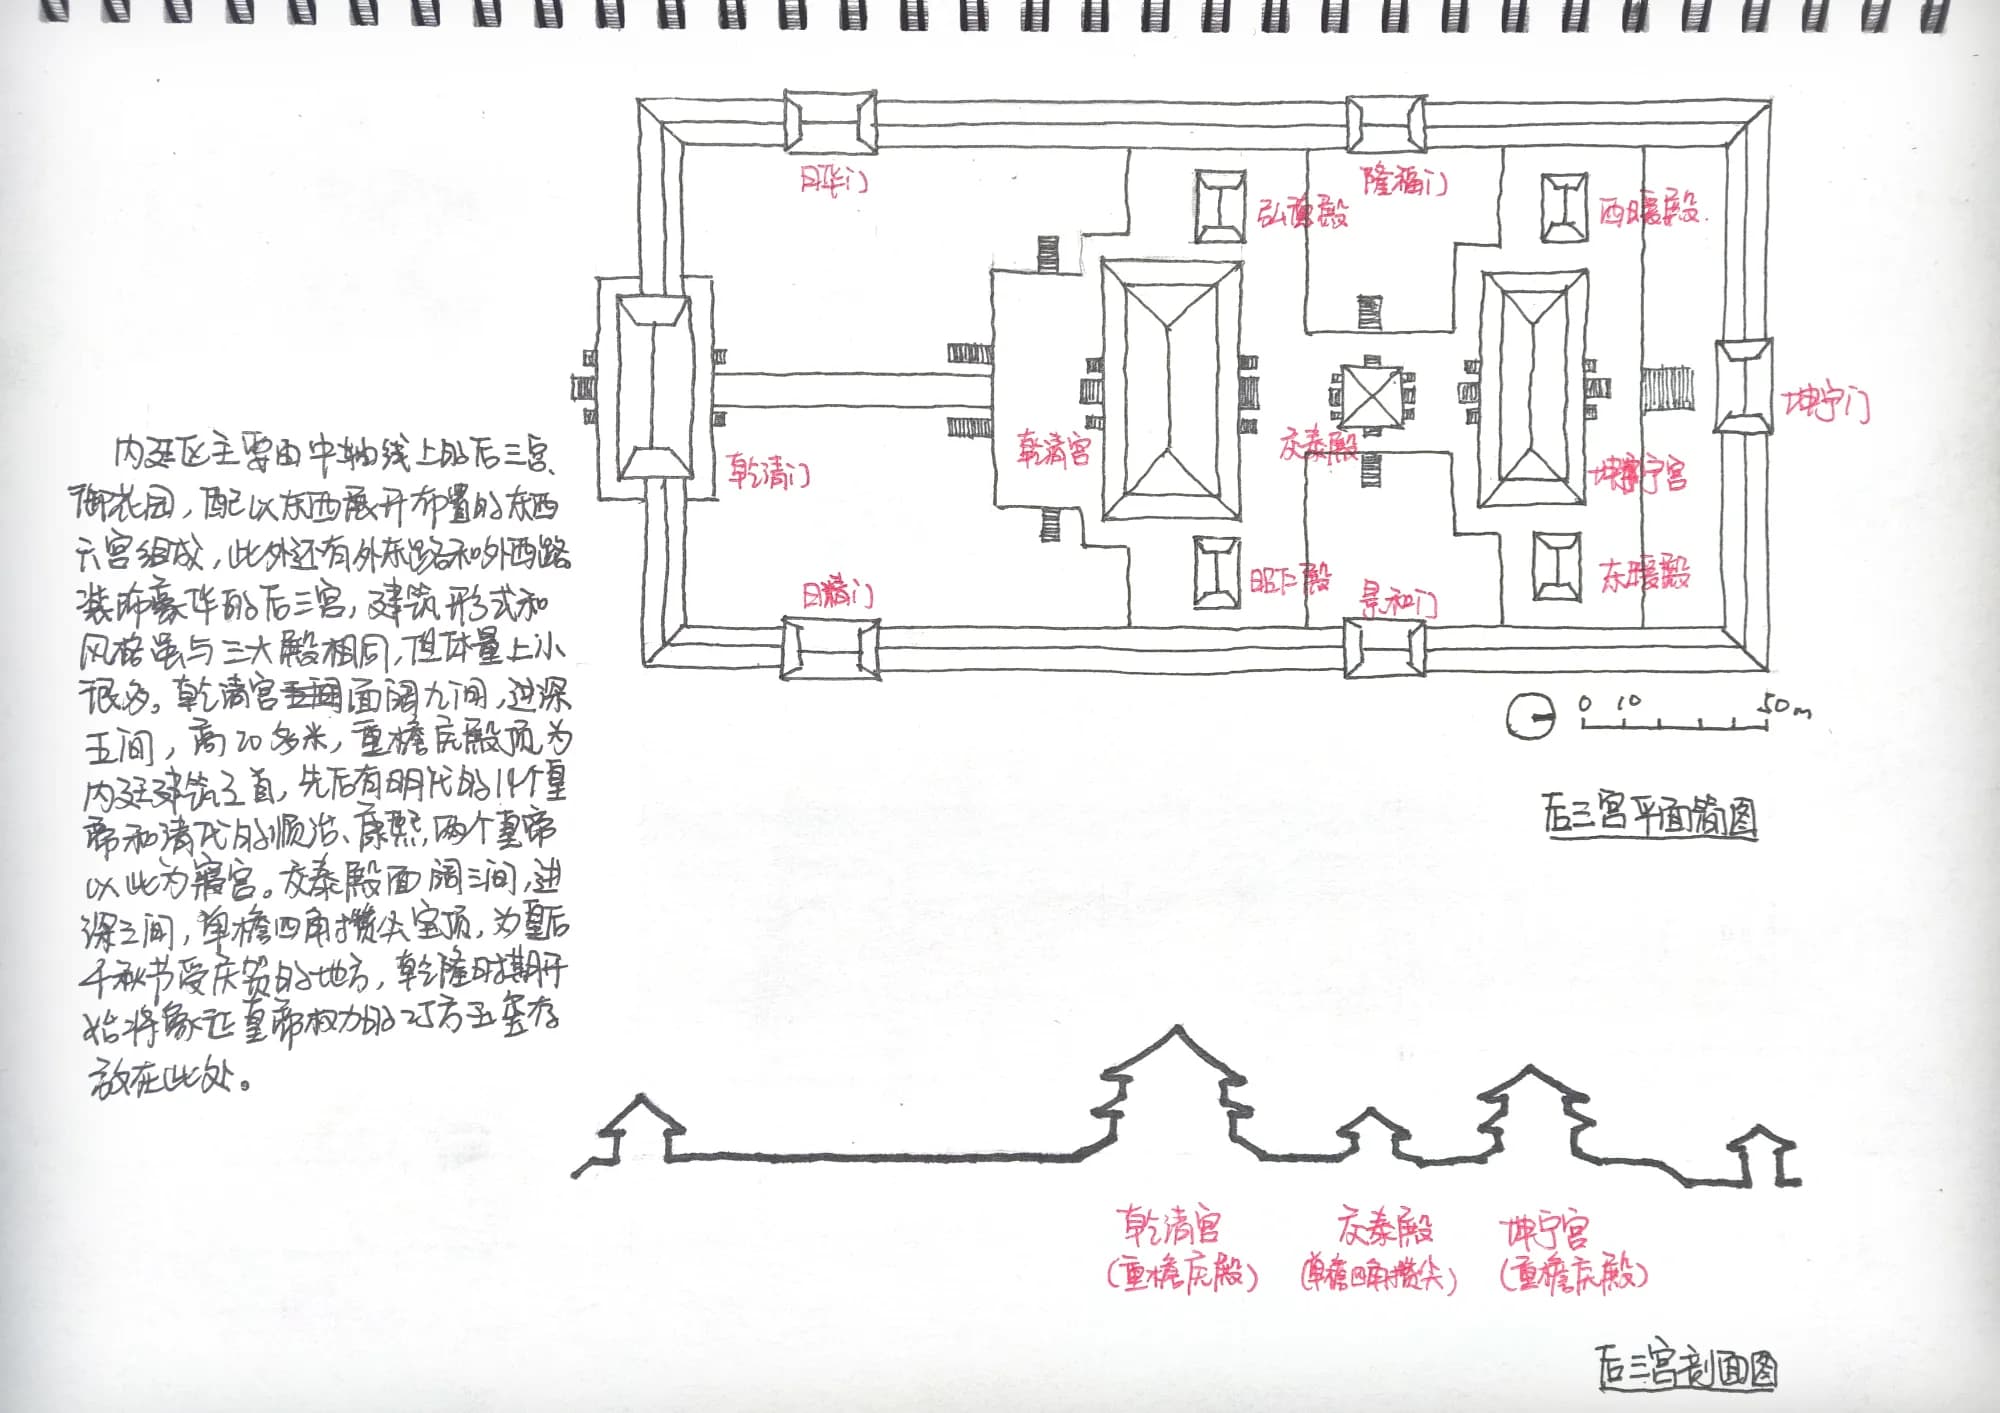 日华门
隆福门
弘德殿
西暖殿
坤宁门
乾清门
乾清宫
交泰殿
坤宁宫
日精门
昭仁殿
景和门
东暖殿
0 10 50m
后三宫平面简图
内廷区主要由中轴线上的后三宫、
御花园，配以东西展开布置的东西
六宫组成，此外还有外东路和外西路。
装饰豪华的后三宫，建筑形式和
风格虽与三大殿相同，但体量上小
很多。乾清宫面阔九间，进深
五间，高20多米，重檐庑殿顶，为
内廷建筑之首，先后有明代的14个皇
帝和清代的顺治、康熙，两个皇帝
以此为寝宫。交泰殿面阔三间，进
深三间，单檐四角攒尖宝顶，为皇后
千秋节受庆贺的地方，乾隆时期开
始将象征皇帝权力的25方玉玺存
放在此处。
乾清宫
(重檐庑殿)
交泰殿
(单檐四角攒尖)
坤宁宫
(重檐庑殿)
后三宫剖面图